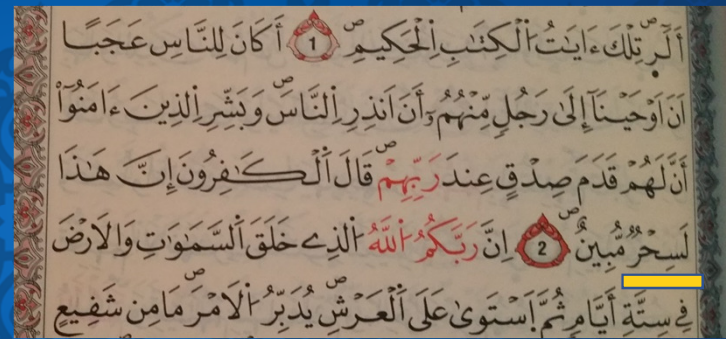 أَلَٓرۖ تِلْكَ ءَايَٰتُ اُ۬لْكِتَٰبِ اِ۬لْحَكِيمِۖ 1 أَكَانَ لِلنَّاسِ عَجَبًا
اَنَ اَوْحَيْنَآ إِلَىٰ رَجُلٍ مِّنْهُمُۥٓ أَنَ اَنذِرِ اِ۬لنَّاسَۖ وَبَشِّرِ اِ۬لذِينَ ءَامَنُوٓاْ
أَنَّ لَهُمْ قَدَمَ صِدْقٍ عِندَ رَبِّهِمْۖ قَالَ اَ۬لْكَٰفِرُونَ إِنَّ هَٰذَا
لَسِحْرٌ مُّبِينٌۖ 2 اِنَّ رَبَّكُمُ اُ۬للَّهُ اُ۬لذِے خَلَقَ اَ۬لسَّمَٰوَٰتِ وَالَارْضَ
فِے سِتَّةِ أَيَّامٍ ثُمَّ اَ۪سْتَوَىٰ عَلَى اَ۬لْعَرْشِۖ يُدَبِّرُ اُ۬لَامْرَۖ مَا مِن شَفِيعٍ